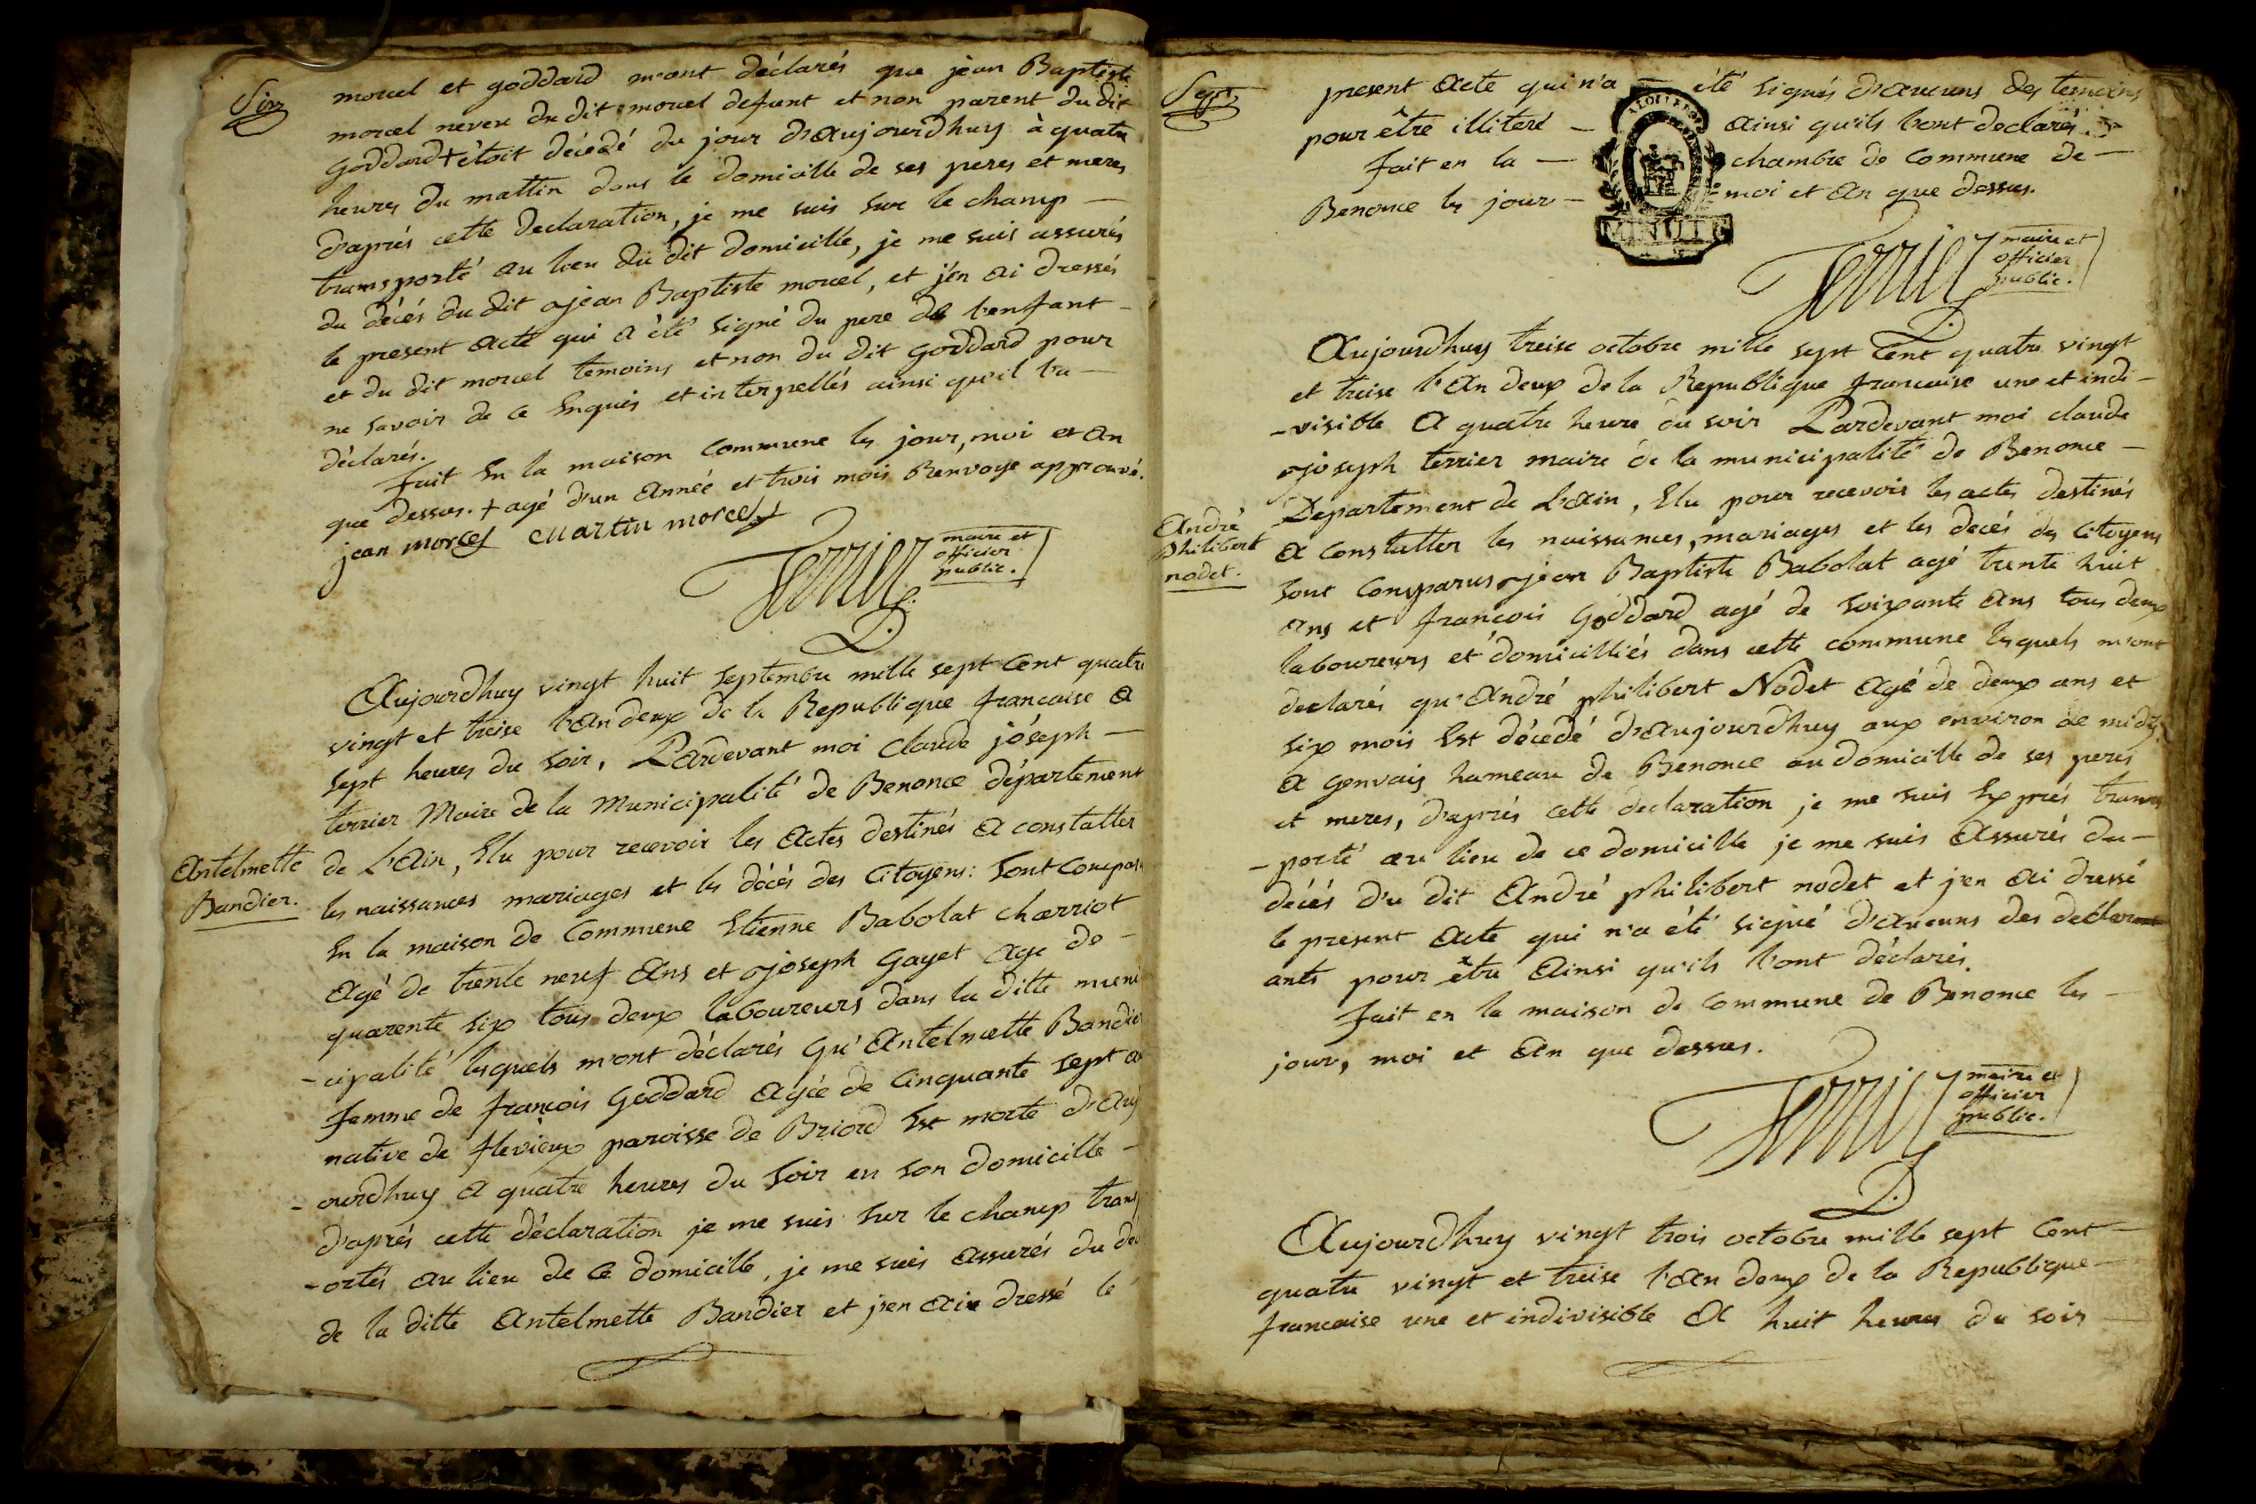 Six
morcel et goddard m'ont déclarés que jean Baptiste
morcel neveu du dit morcel defunt et non parent du dit
goddard + étoit décédé du jour d'aujourdhuy à quatre
heures du mattin dans le domicille de ses peres et meres
d'aprés cette declaration, je me suis sur le champ —
transporté au lieu du dit domicille, je me suis assurés
du décés du dit jean Baptiste morcel, et j'en ai dressés
le present acte qui a été signé du pere de l'enfant —
et du dit morcel temoins et non du dit goddard pour
ne savoir de ce Enquis et interpellés ainsi qu'il l'a —
déclarés.
fait En la maison commune les jour, moi et an
que dessus. + agé d'un année et trois mois Renvoye approuvé.
jean morcel martin morcel
Terrier maire et
officier
public.
Aujourdhuy vingt huit septembre mille sept cent quatre
vingt et treise l'an deux de la Republique francaise a
sept heures du soir, Pardevant moi claude jóseph —
terrier Maire de la Municipalité de Benonce département
Antelmette
Bandier.
de L'ain, Elu pour recevoir les actes destinés a constatter
les naissances mariages et les décés des citoyens: sont compar
En la maison de commune Etienne Babolat charriot
agé de trente neuf ans et joseph gayet age de —
quarente six tous deux laboureurs dans la ditte muni
-cipalité lesquels m'ont déclarés qu'antelmette Bandier
femme de françois goddard agée de cinquante sept a
native de flevieux paroisse de Briord Est morte d'auj
-ourdhuy a quatre heures du soir en son domicille —
d'aprés cette déclaration je me suis sur le champ transp
-ortés au lieu de ce domicille, je me suis assurés du de
de la ditte antelmette Bandier et j'en ai dressé le
Sept
present acte qui n'a — été signés d'aucuns des temoins
pour être illiteré — ainsi qu'ils l'ont declarés
fait en la — chambre de commune de —
Benonce les jour — moi et an que dessus.
MINUTE
Terrier maire et
officier
public.
Aujourdhuy treise octobre mille sept cent quatre vingt
et treise l'an deux de la Republique francaise une et indi-
-visible a quatre heure du soir Pardevant moi claude
joseph terrier maire de la municipalité de Benonce —
André
philibert
nodet.
Departement de L'ain, Elu pour recevoir les actes destinés
a constatter les naissances, mariages et les decés des citoyens
sont comparus jean Baptiste Babolat agé trente huit
ans et francois goddard agé de soixante ans tous deux
laboureurs et domicilliés dans cette commune lesquels m'ont
declarés qu'andré philibert Nodet agé de deux ans et
six mois Est décédé d'aujourdhuy aux environ de midy
a genvais hameau de Benonce au domicille de ses peres
et meres, d'aprés cette declaration je me suis Exprés trans
-porté au lieu de ce domicille je me suis assurés du —
décés du dit andré philibert nodet et j'en ai dressé
le present acte qui n'a été signé d'aucuns des declar
ants pour être ainsi qu'ils l'ont déclarés.
fait en la maison de commune de Benonce les —
jour, moi et an que dessus.
Terrier maire et
officier
public.
Aujourdhuy vingt trois octobre mille sept cent —
quatre vingt et treise l'an deux de la Republique —
francaise une et indivisible a huit heures du soir —